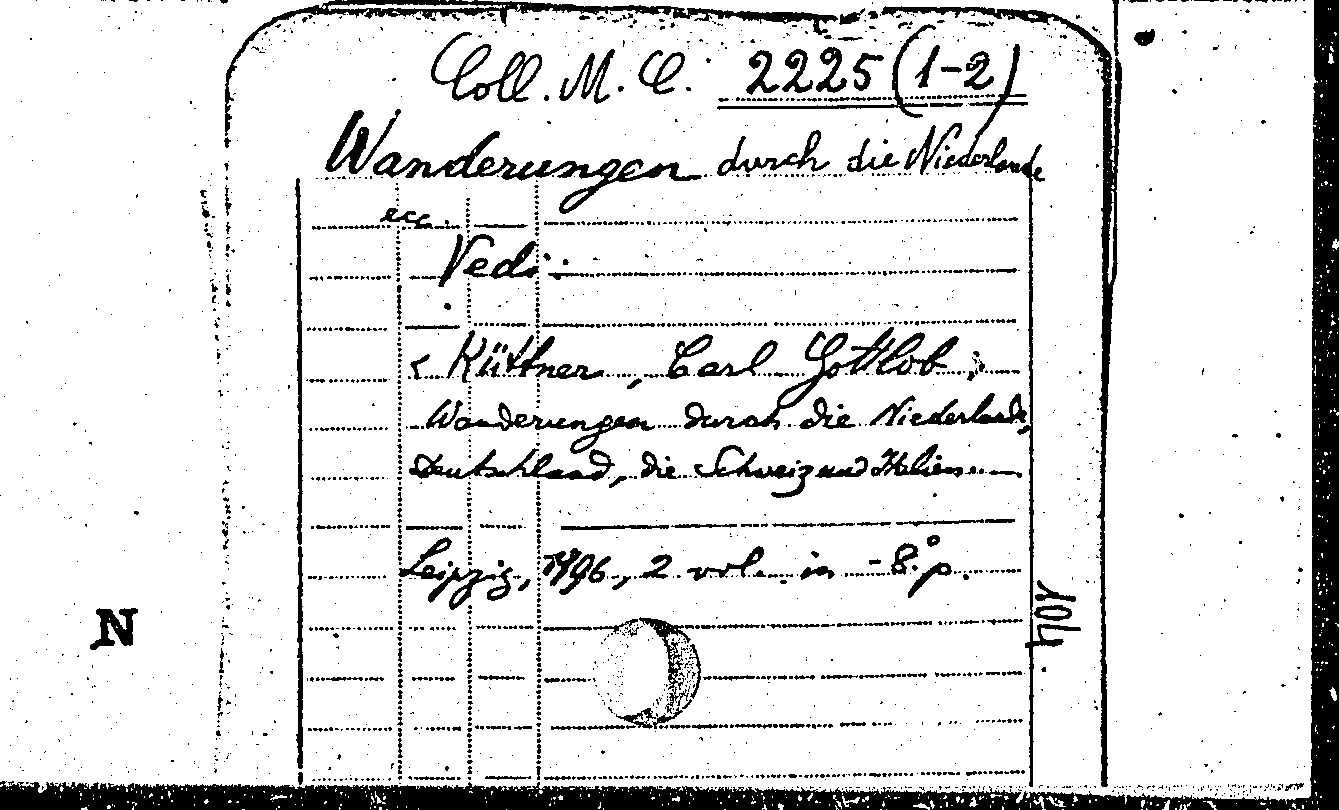 Coll. M. C. 2225 (1-2)
Wanderungen durch die Niederlande
ecc.
Vedi:
< Küttner, Carl Gottlob >
Wanderungen durch die Niederlande,
Deutschland, die Schweiz und Italien
Leipzig, 1796, 2 vol. in -8.° p.
N